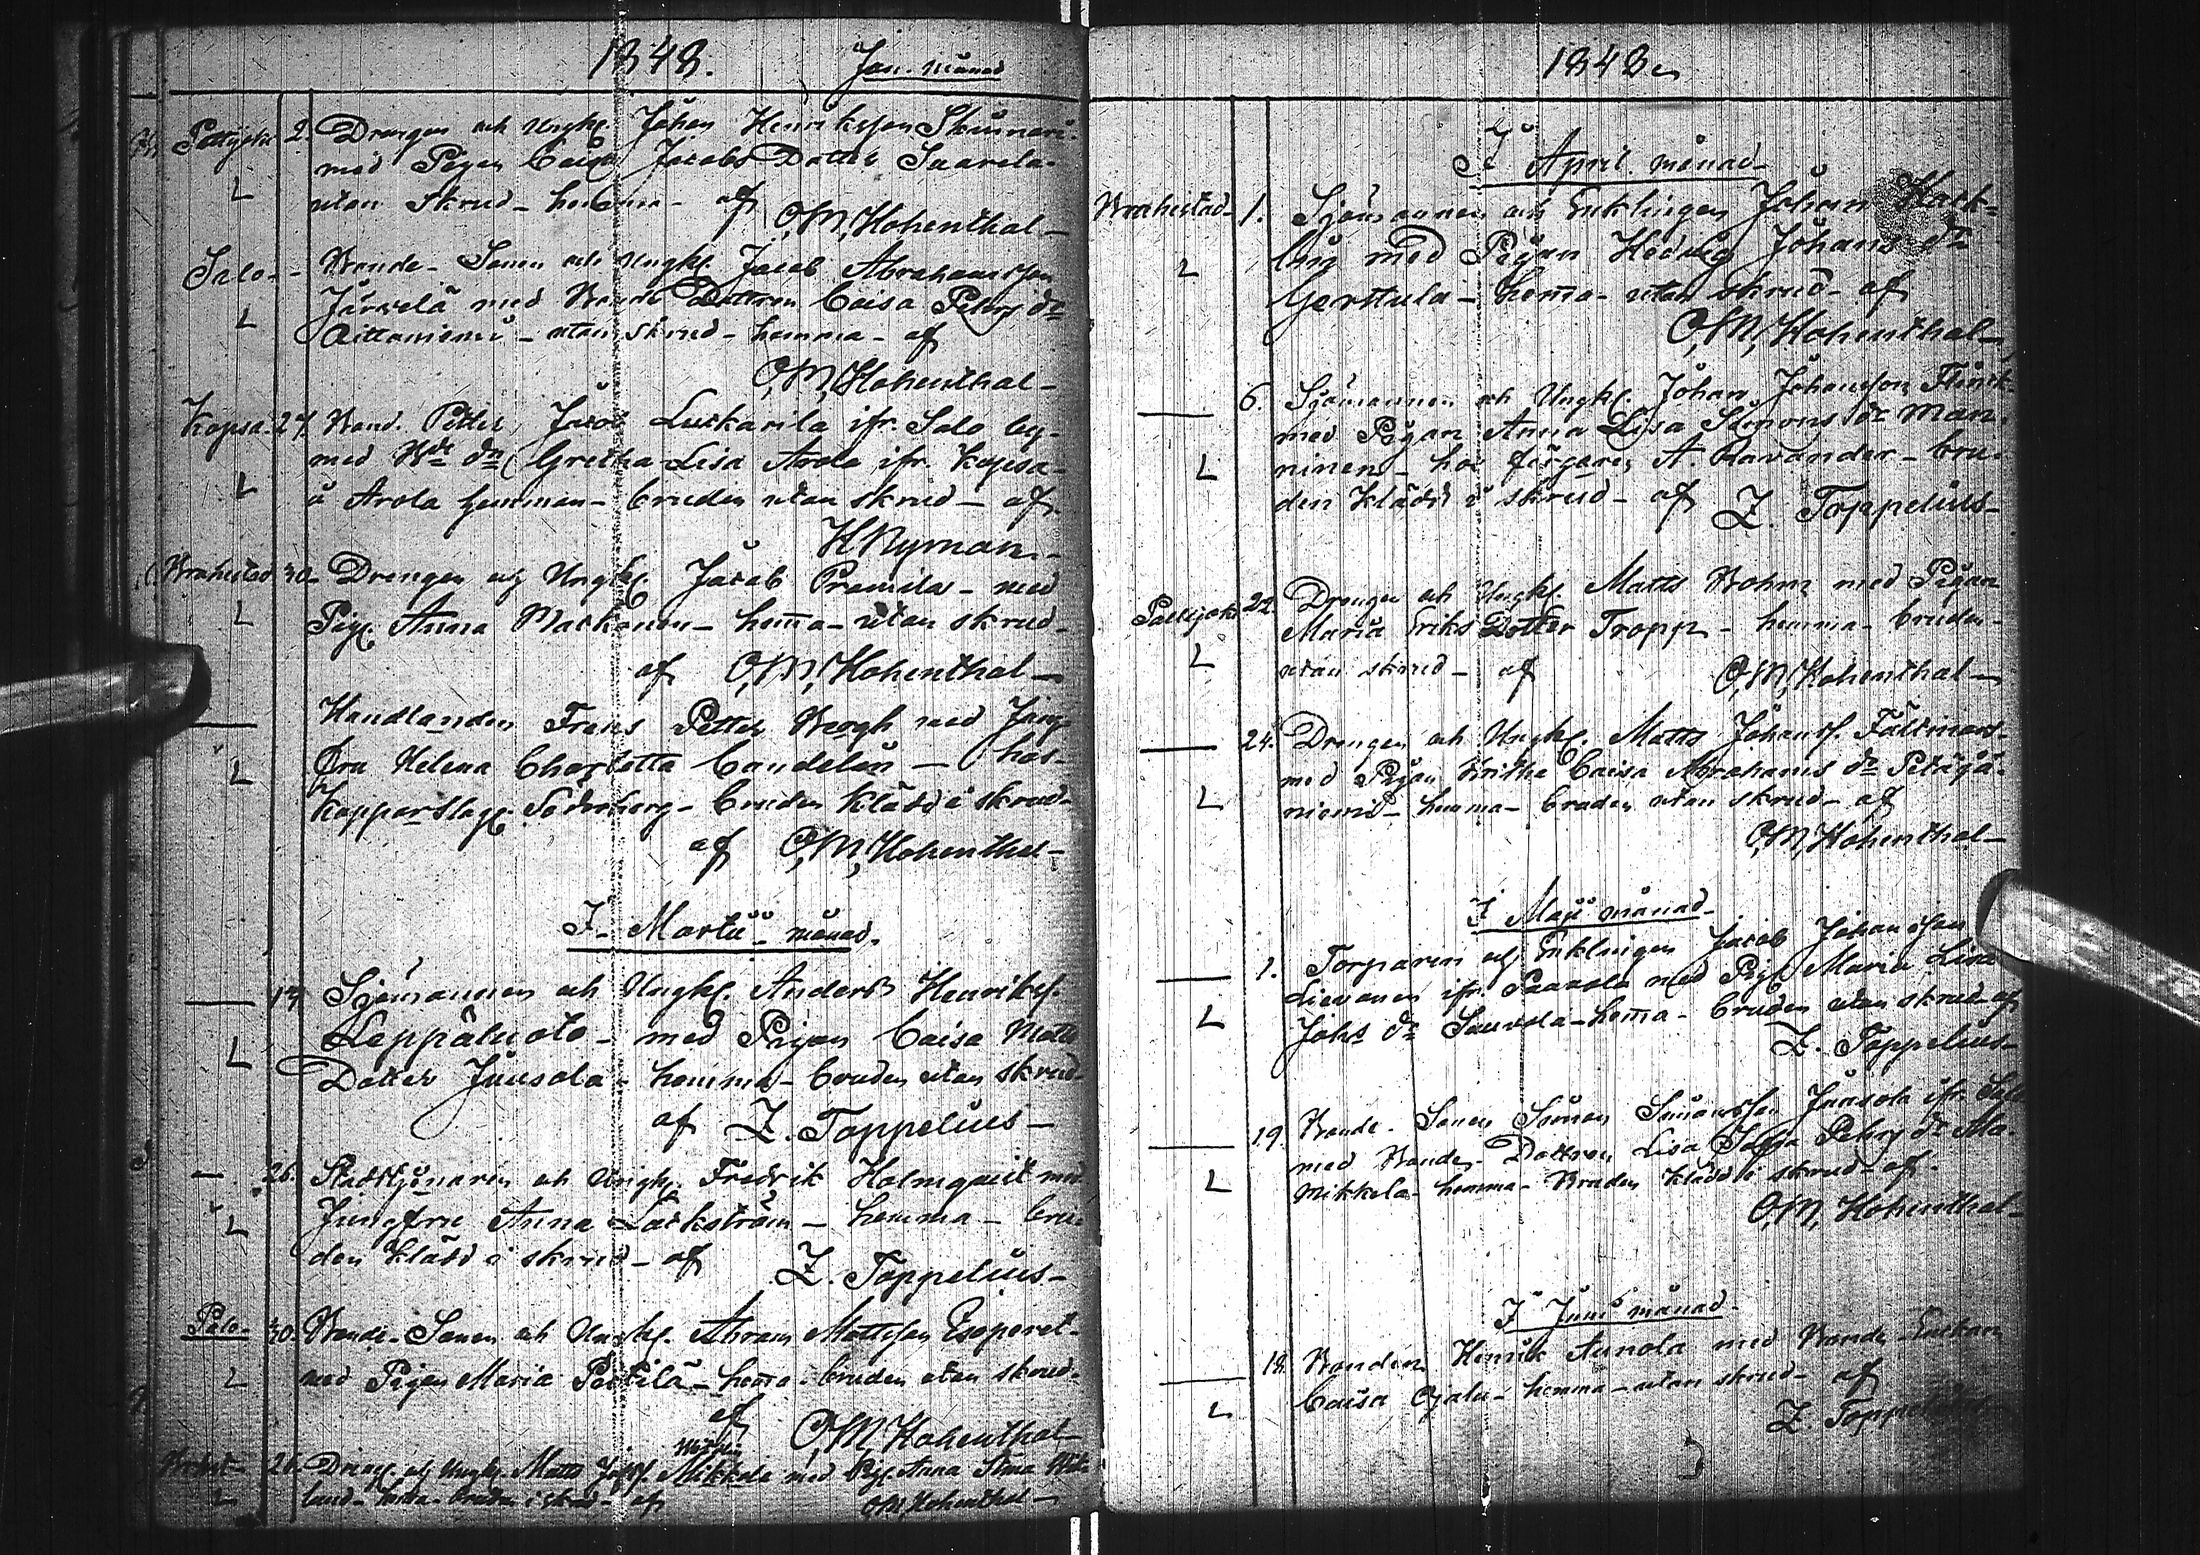 1848. Jan. månad
Pattijoki 2. Drengen och Ungk. Johan Henriksson
med Pigan Caisa Jacobs Dotter Saarela-
L utan skrud- hemma- af O,M,Hohenthal-
Salo- - Bonde- Sonen och Ungk. Jacob Abrahamsson
L Järvelä med Bonde Dottren Caisa Pehrs dr
Aittoniemi- utan skrud- hemma- af
O,M,Hohenthal-
Kopsa- 27. Bond. Petter Jacob Luckarila ifr. Salo by-
med Bde dn Gretha Lisa Arola ifr. Kopsa-
L å Arola hemman- bruden utan skrud- af
H Nyman-
Brahestad 30- Drengen och Ungk. Jacob Pramila- med
L Pig. Anna Matkanen- hema- utan skrud-
af O,M,Hohenthal-
— Handlanden Frans Petter Bergh med Jung-
L fru Helena Charlotta Candelin- hos
Kopparslag. Söderberg- bruden klädd i skrud-
af O,M,Hohenthal-
I Martii- månad.
— 19. Sjömannen och Ungk. Anders Henriks.
L Leppäluoto- med Pigan Caisa Matts
Dotter Juusola- hemma- bruden utan skrud-
af Z. Toppelius-
— 26. Stadstjenaren och Ungk. Fredrik Holmquist med
L Jungfru Anna Lackström- hemma- bru-
den klädd i skrud- af Z. Toppelius-
Palo- 30. Bonde- Sonen och Ungk. Abram Mattsson
L med Pigan Maria Perttilä- hema- bruden utan skrud-
af O,M,Hohenthal
Brahest- 26. Dreng. och Ungk. Matts Mikkola med Pig. Anna Stina
L land- hema- bruden i skrud- af O,M,Hohenthal-
1848
I April månad-
Brahestad- 1. Sjömannen och Enklingen Johan Hack-
L lin med Pigan Hedvig Johans dr
Gerttula- hema- utan skrud- af
O,M,Hohenthal-
— 6. Sjömannen och Ungk. Johan Johansson Flinck-
med Pigan Anna Lisa Simons dr Man-
L ninen- hos färgaren A. Ravander- bru-
den klädd i skrud- af Z. Toppelius-
Pattijoki 22. Drengen och Ungk. Matts Bohm med Pigan
Maria Eriks Dotter Tropp- hemma- bruden-
L utan skrud- af O,M,Hohenthal-
— 24. Drengen och Ungk. Matts Johanss. Fältmars-
med Pigan Britha Caisa Abrahams dr Petäjä-
L niemi- hemma- bruden utan skrud- af
O,M,Hohenthal-
I Maji månad-
— 1. Torparen och Enklingen Jacob Johansson
Lievonen ifr. Paavola med Pig. Maria Lisa
L Johs dr Saarela- hema- bruden utan skrud- af
Z. Toppelius-
— 19. Bonde- Sonen Simon Simonsson Juusola ifr. Salo
med Bonde- Dottren Lisa Pehrs dr Ma-
L mikkela- hemma- Bruden klädd i skrud- af-
O,M,Hohenthal-
I Junii månad-
— 18. Bonden Henrik Aunola med Bonde- Enkan
L Caisa Ojala- hemma- utan skrud- af
Z. Toppelius